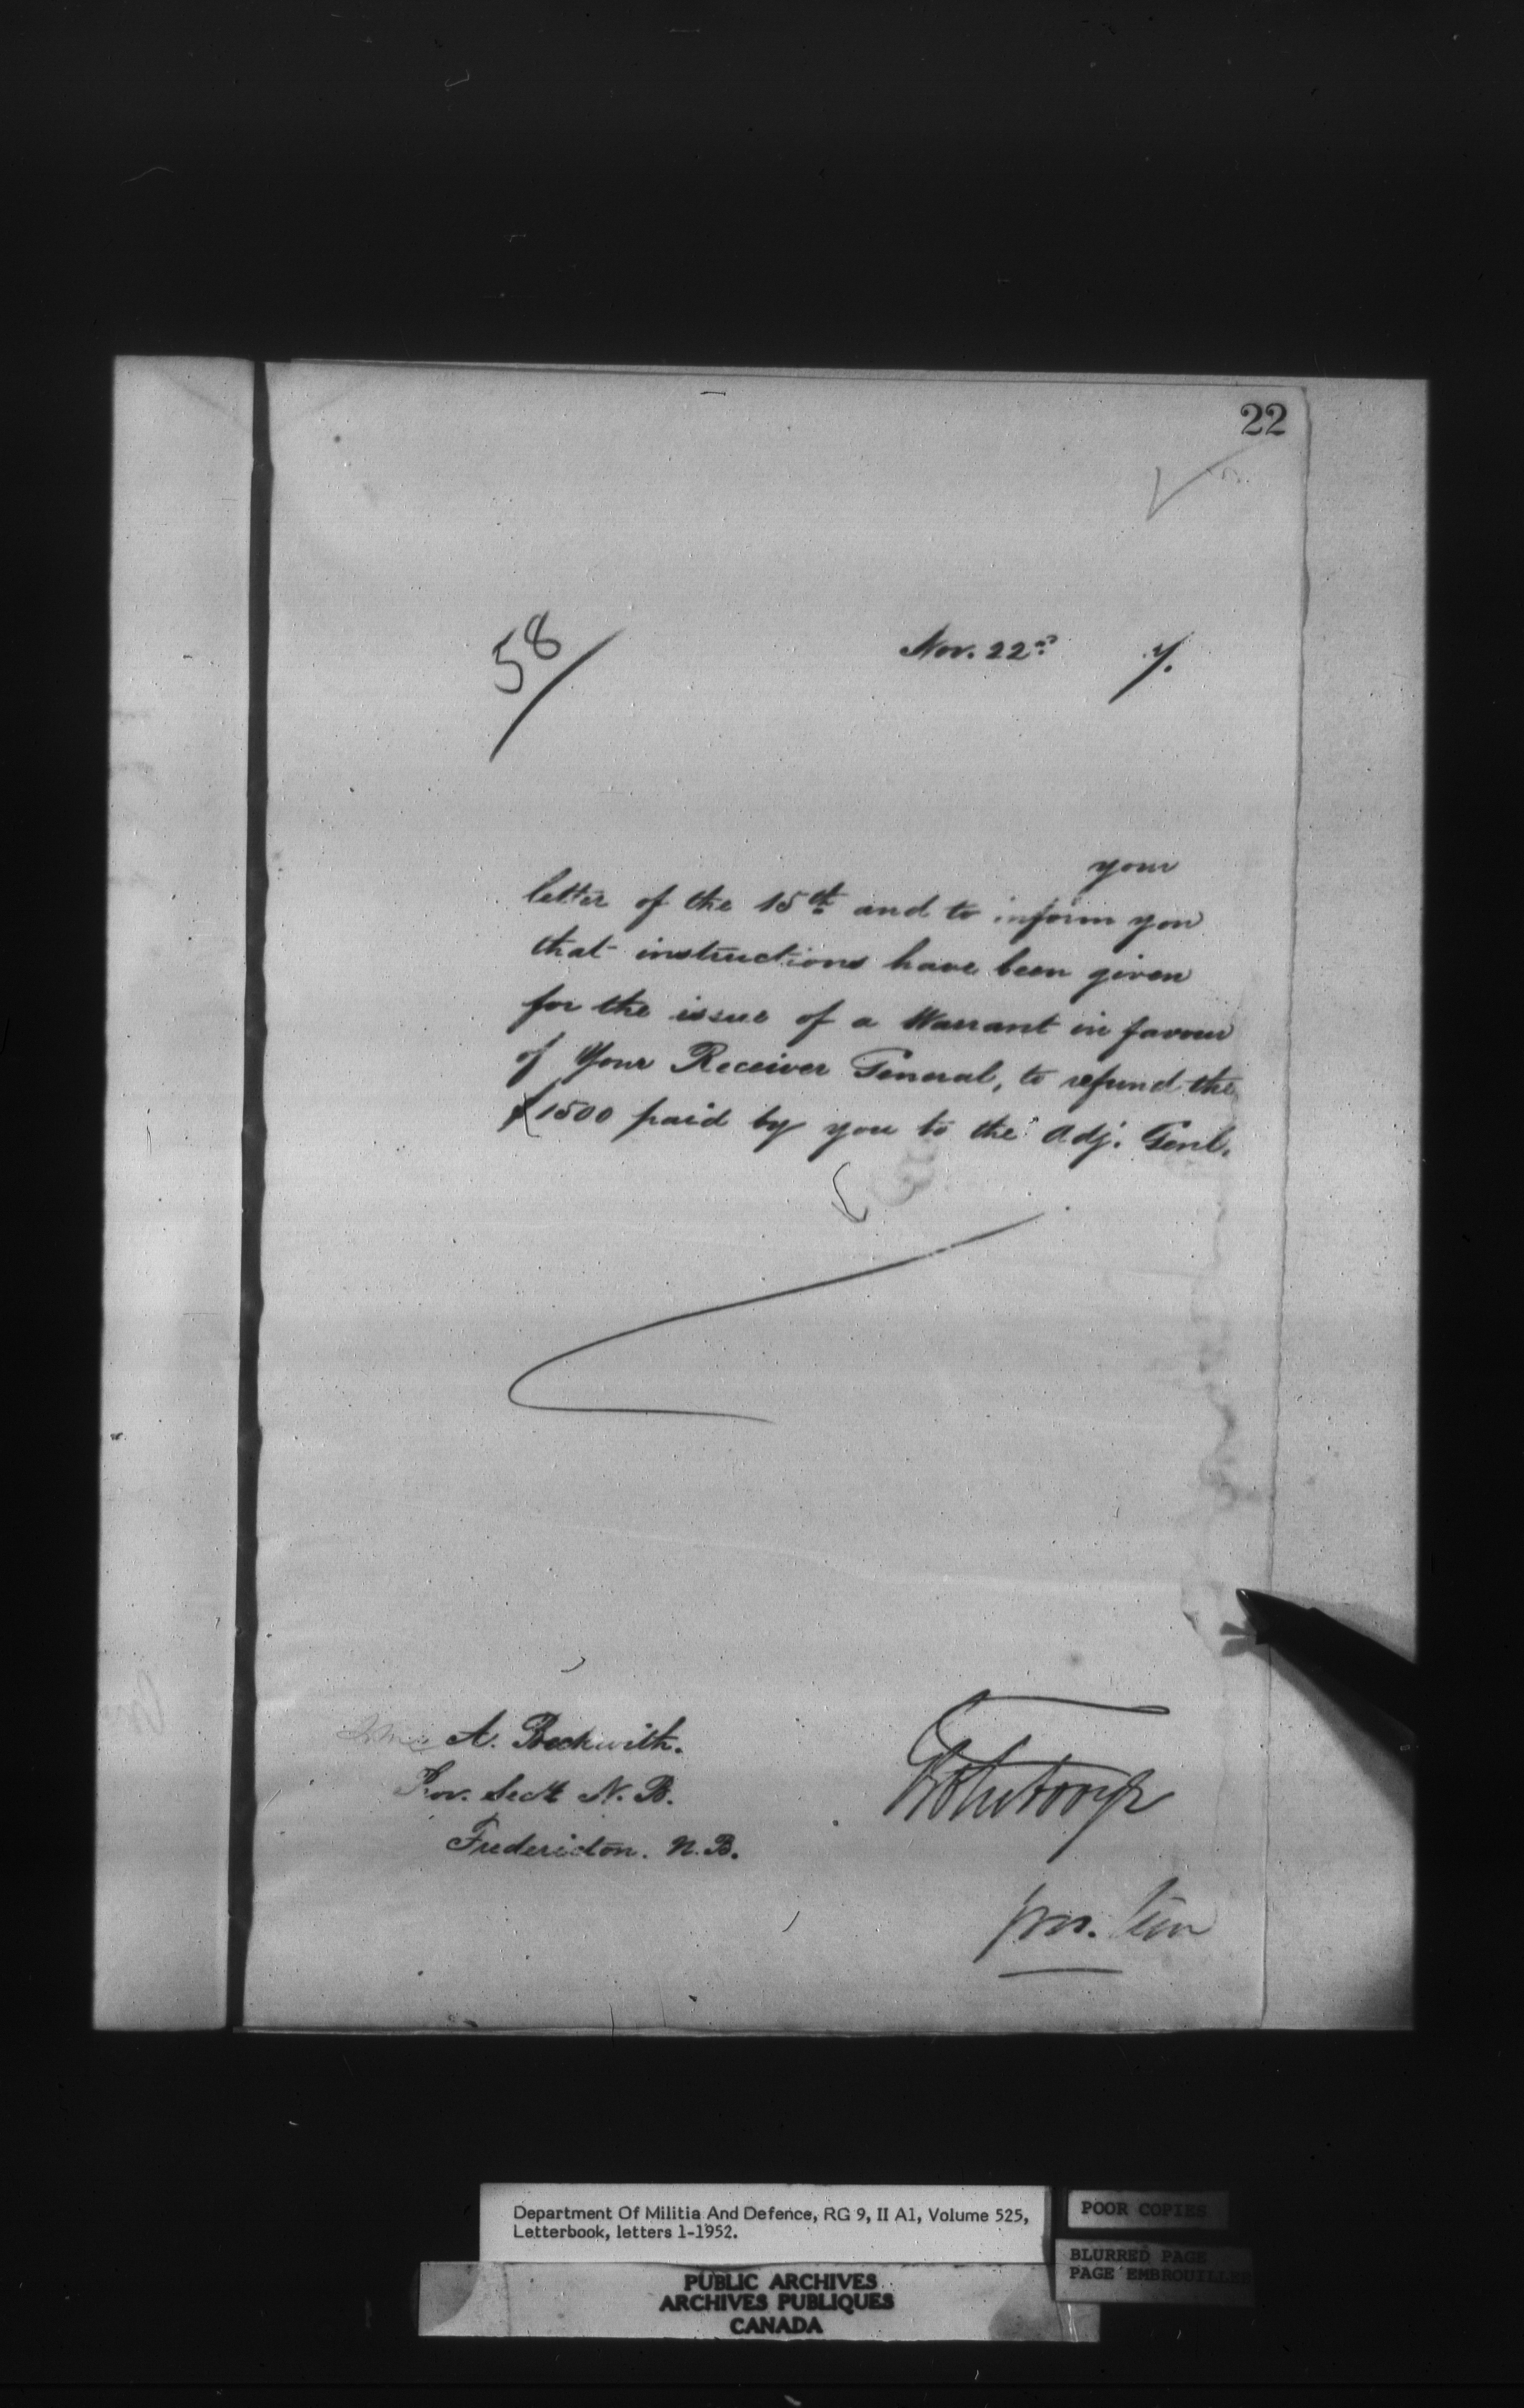 22
58
Nov. 22nd 7.
your
letter of the 15th and to inform you
that instructions have been given
for the issue of a Warrant in favour
of Your Receiver General, to refund the
$1500 paid by you to the Adj. Genl.
A. Beckwith.
Prov. Secy N. B.
Fredericton. N. B.
Department Of Militia And Defence, RG 9, II A1, Volume 525,
Letterbook, letters 1-1952.
POOR COPIES
BLURRED PAGE
PAGE EMBROUILLEE
PUBLIC ARCHIVES
ARCHIVES PUBLIQUES
CANADA